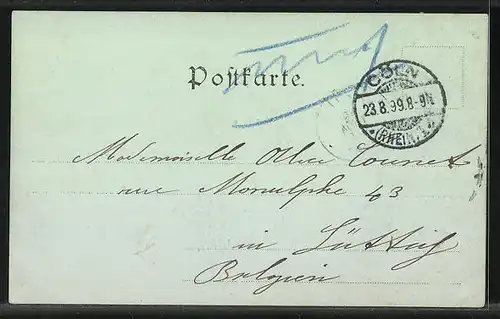 Postkarte.
CÖLN
23.8.99.8-9½
(RHEIN) 1.
Mademoiselle Tournet
rue Monulphe 43
in Lüttich
Belgien